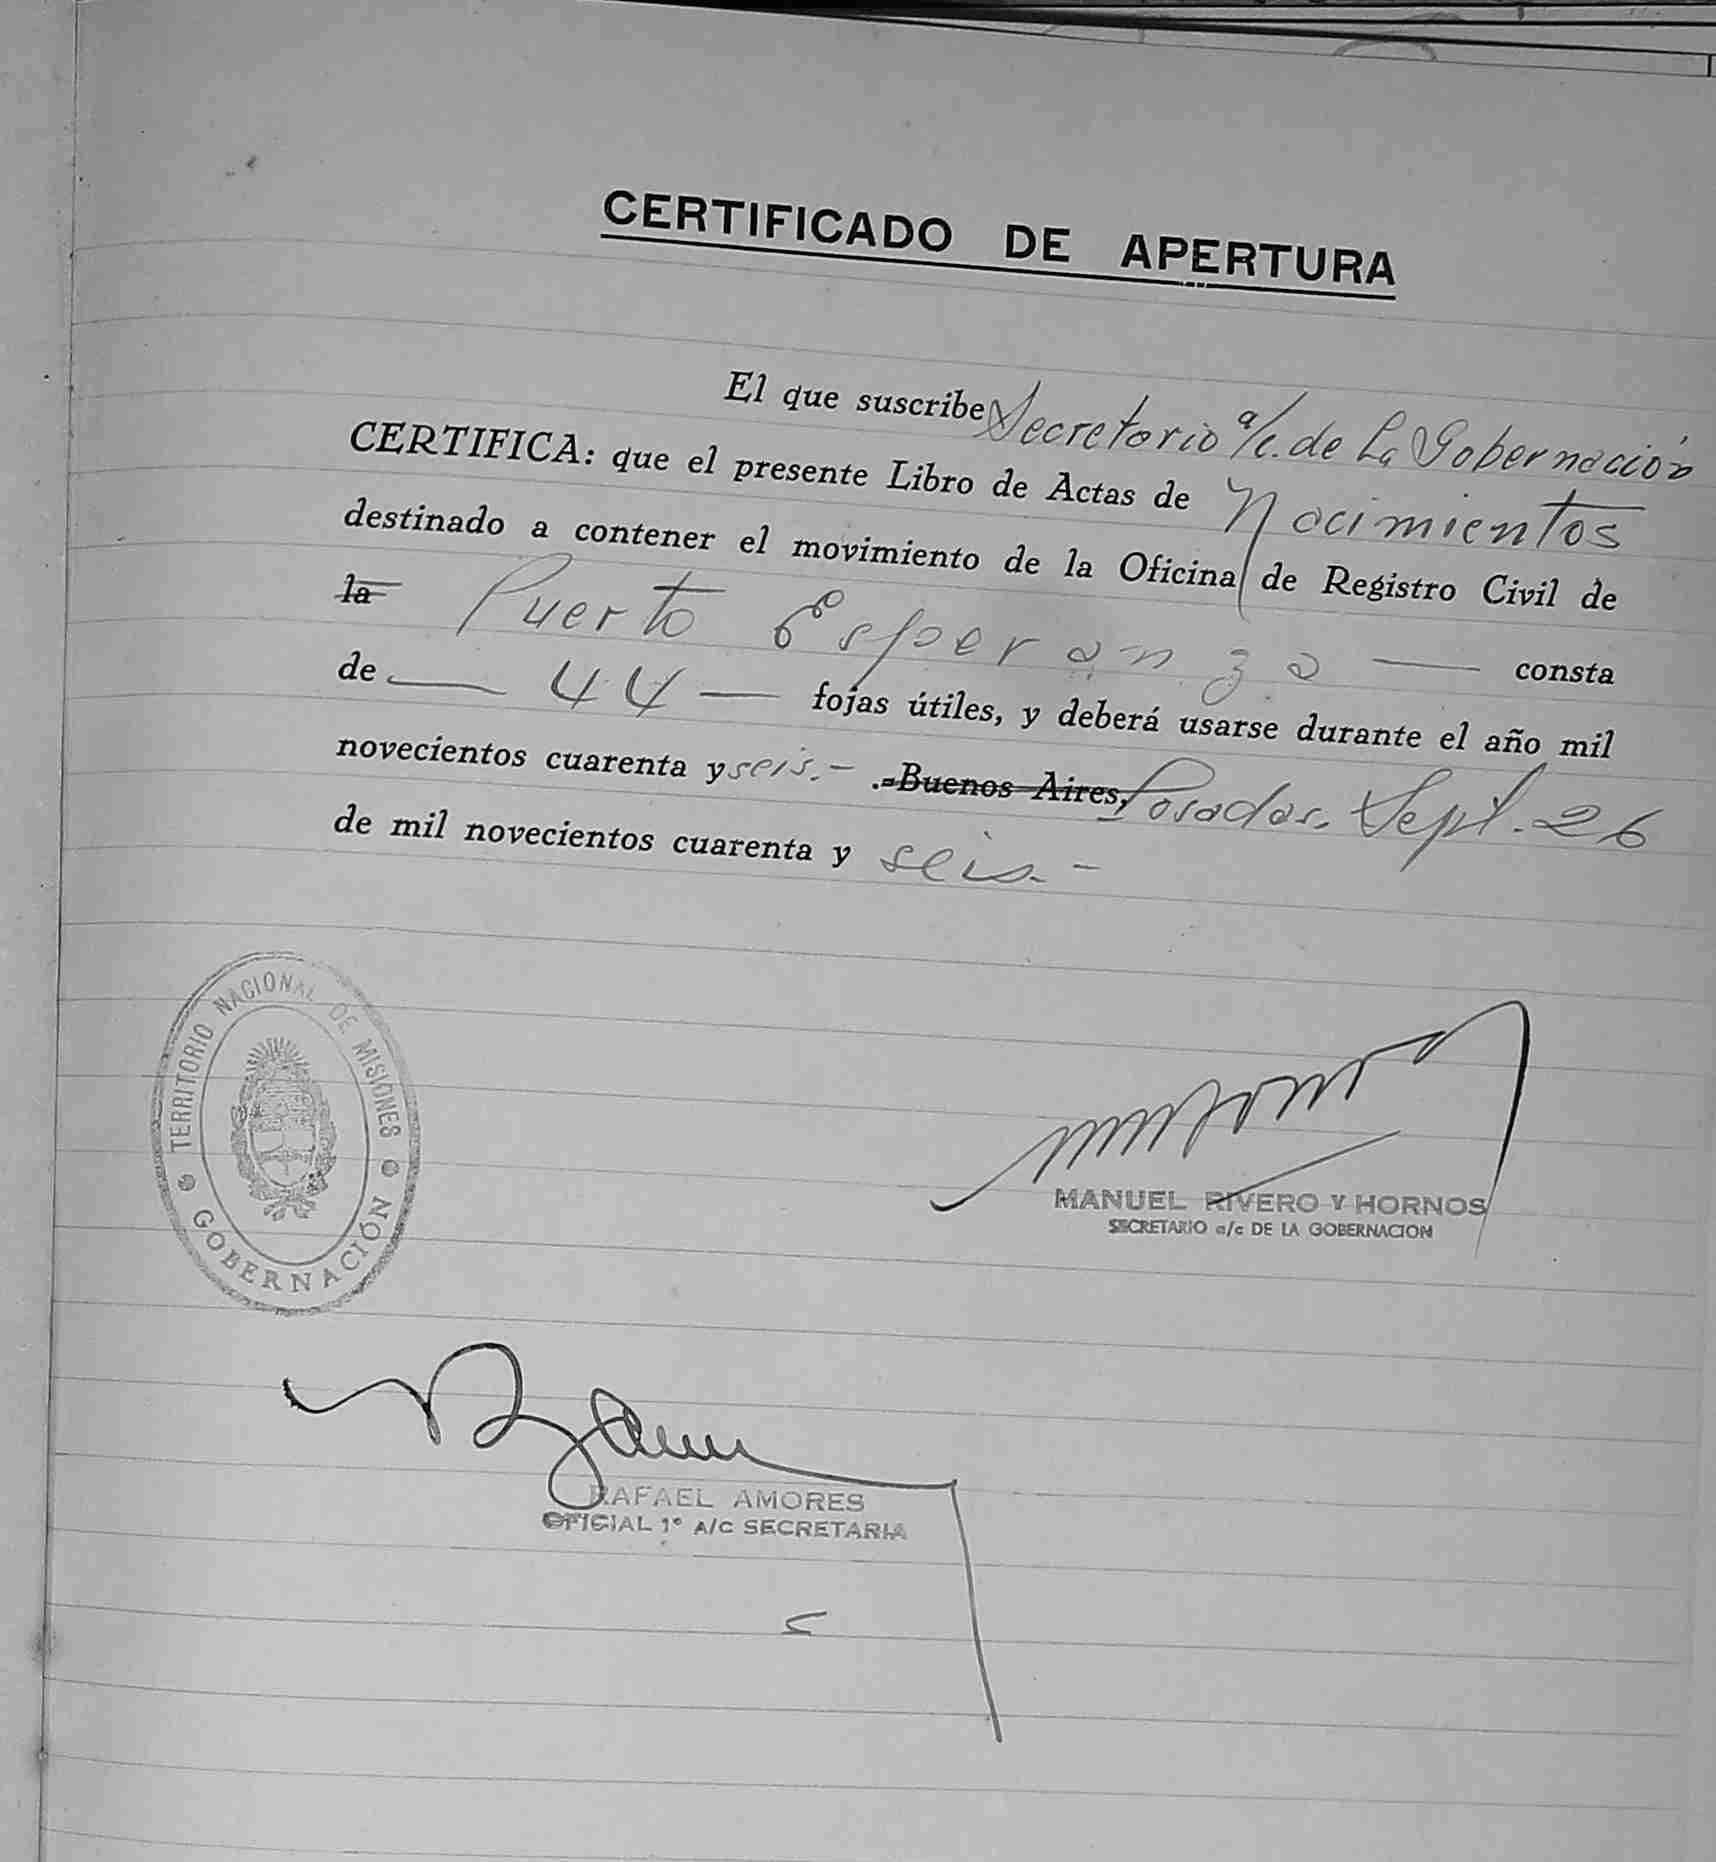 CERTIFICADO DE APERTURA
El que suscribe Secretario a/c. de la Gobernación
CERTIFICA: que el presente Libro de Actas de Nacimientos
destinado a contener el movimiento de la Oficina de Registro Civil de
la Puerto Esperanza — consta
de — 44 — fojas útiles, y deberá usarse durante el año mil
novecientos cuarenta y seis.- .-Buenos Aires, Posadas, Sept. 26
de mil novecientos cuarenta y seis.-
TERRITORIO NACIONAL DE MISIONES
GOBERNACIÓN
MANUEL RIVERO Y HORNOS
SECRETARIO a/c DE LA GOBERNACION
RAFAEL AMORES
OFICIAL 1º A/C SECRETARIA